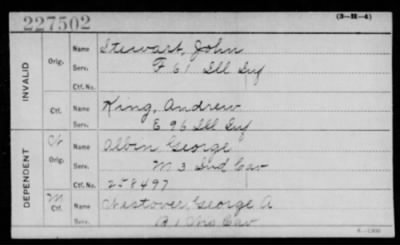 227502
(3-H-4)
INVALID
Orig.
Name Stewart, John
Serv. F 61 Ill Inf
Ctf. No.
Ctf.
Name King, Andrew
Serv. E 96 Ill Inf
DEPENDENT
W
Orig.
Name Albin George
Serv. M 3 Ind Cav
Ctf. No. 258497
M
Ctf.
Name Westover, George A
Serv. B 1 Cav